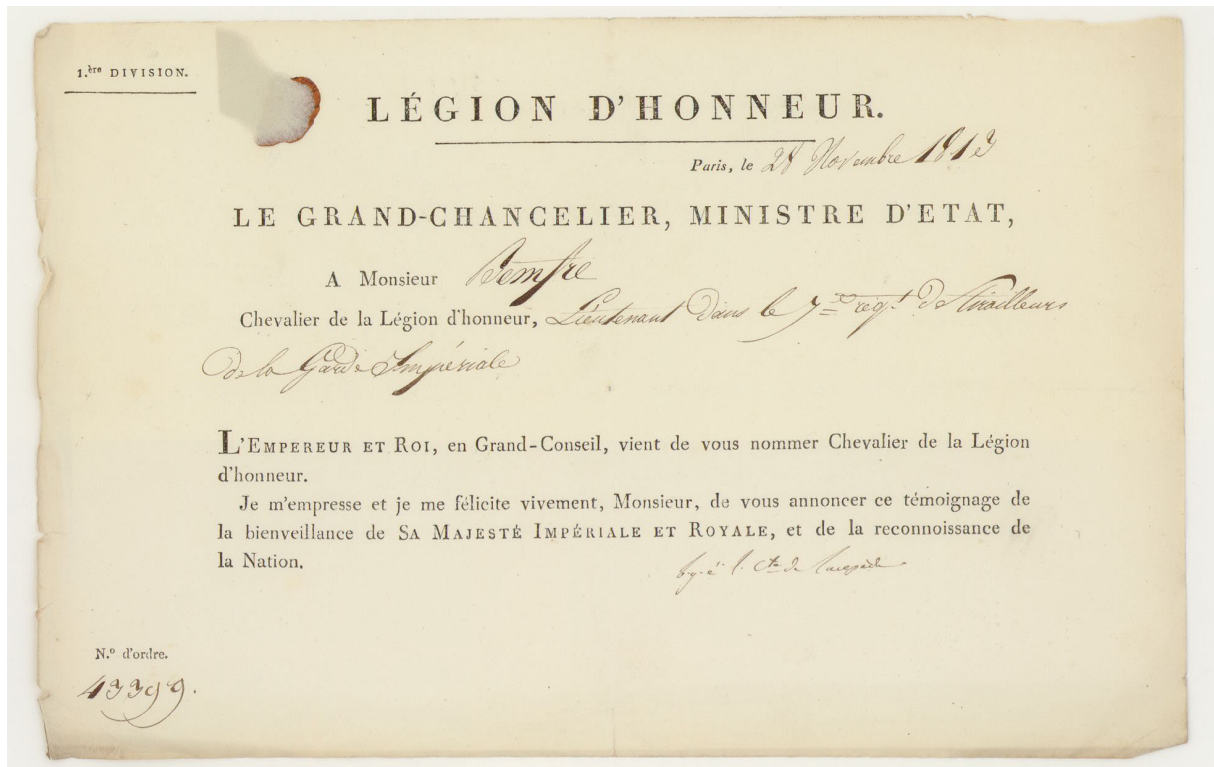 1.ère DIVISION.
LÉGION D'HONNEUR.
Paris, le 28 Novembre 1813
LE GRAND-CHANCELIER, MINISTRE D'ETAT,
A Monsieur
Chevalier de la Légion d'honneur, Lieutenant dans le 7.me regt. de Tirailleurs
de la Garde Impériale
L'EMPEREUR ET ROI, en Grand-Conseil, vient de vous nommer Chevalier de la Légion
d'honneur.
Je m'empresse et je me félicite vivement, Monsieur, de vous annoncer ce témoignage de
la bienveillance de SA MAJESTÉ IMPÉRIALE ET ROYALE, et de la reconnoissance de
la Nation.
Cte de Lacepède
N.º d'ordre.
43399.